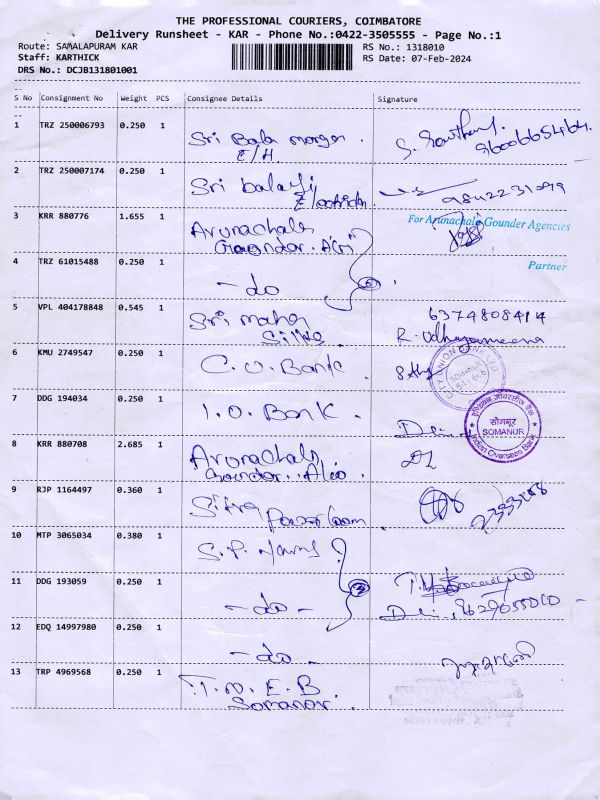 THE PROFESSIONAL COURIERS, COIMBATORE
Delivery Runsheet - KAR - Phone No.:0422-3505555 - Page No.:1
Route: SAMALAPURAM KAR
RS No.: 1318010
Staff: KARTHICK
RS Date: 07-Feb-2024
DRS No.: DCJB131801001
S No Consignment No Weight PCS Consignee Details Signature
1 TRZ 250006793 0.250 1 Sri Bala
E/H
2 TRZ 250007174 0.250 1 Sri balaji
9842231099
3 KRR 880776 1.655 1 Arunachala
For Arunachala Gounder Agencies
Partner
4 TRZ 61015488 0.250 1 - do
5 VPL 404178848 0.545 1 Sri
6374808414
6 KMU 2749547 0.250 1 C.U. Bank
CITY UNION BANK LTD
7 DDG 194034 0.250 1 I.O. Bank
सोमनूर
SOMANUR
Indian Overseas Bank
8 KRR 880708 2.685 1 Arunachala
9 RJP 1164497 0.360 1
10 MTP 3065034 0.380 1 S.P.
11 DDG 193059 0.250 1 - do -
12 EDQ 14997980 0.250 1 - do -
13 TRP 4969568 0.250 1 T.N.E.B
Somanur